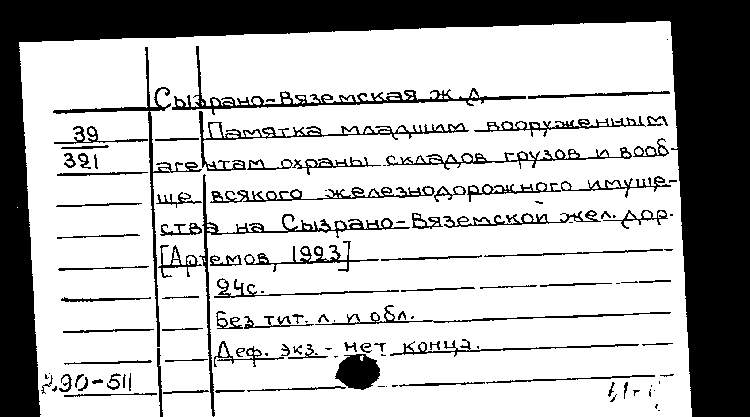 Сызрано-Вяземская ж.д.
39
321
Памятка младшим вооруженным
агентам охраны складов грузов и вооб-
ще всякого железнодорожного имуще-
ства на Сызрано-Вяземской жел. дор.
[Артемов, 1923]
24с.
Без тит. л. и обл.
Деф. экз. - нет конца.
290-511